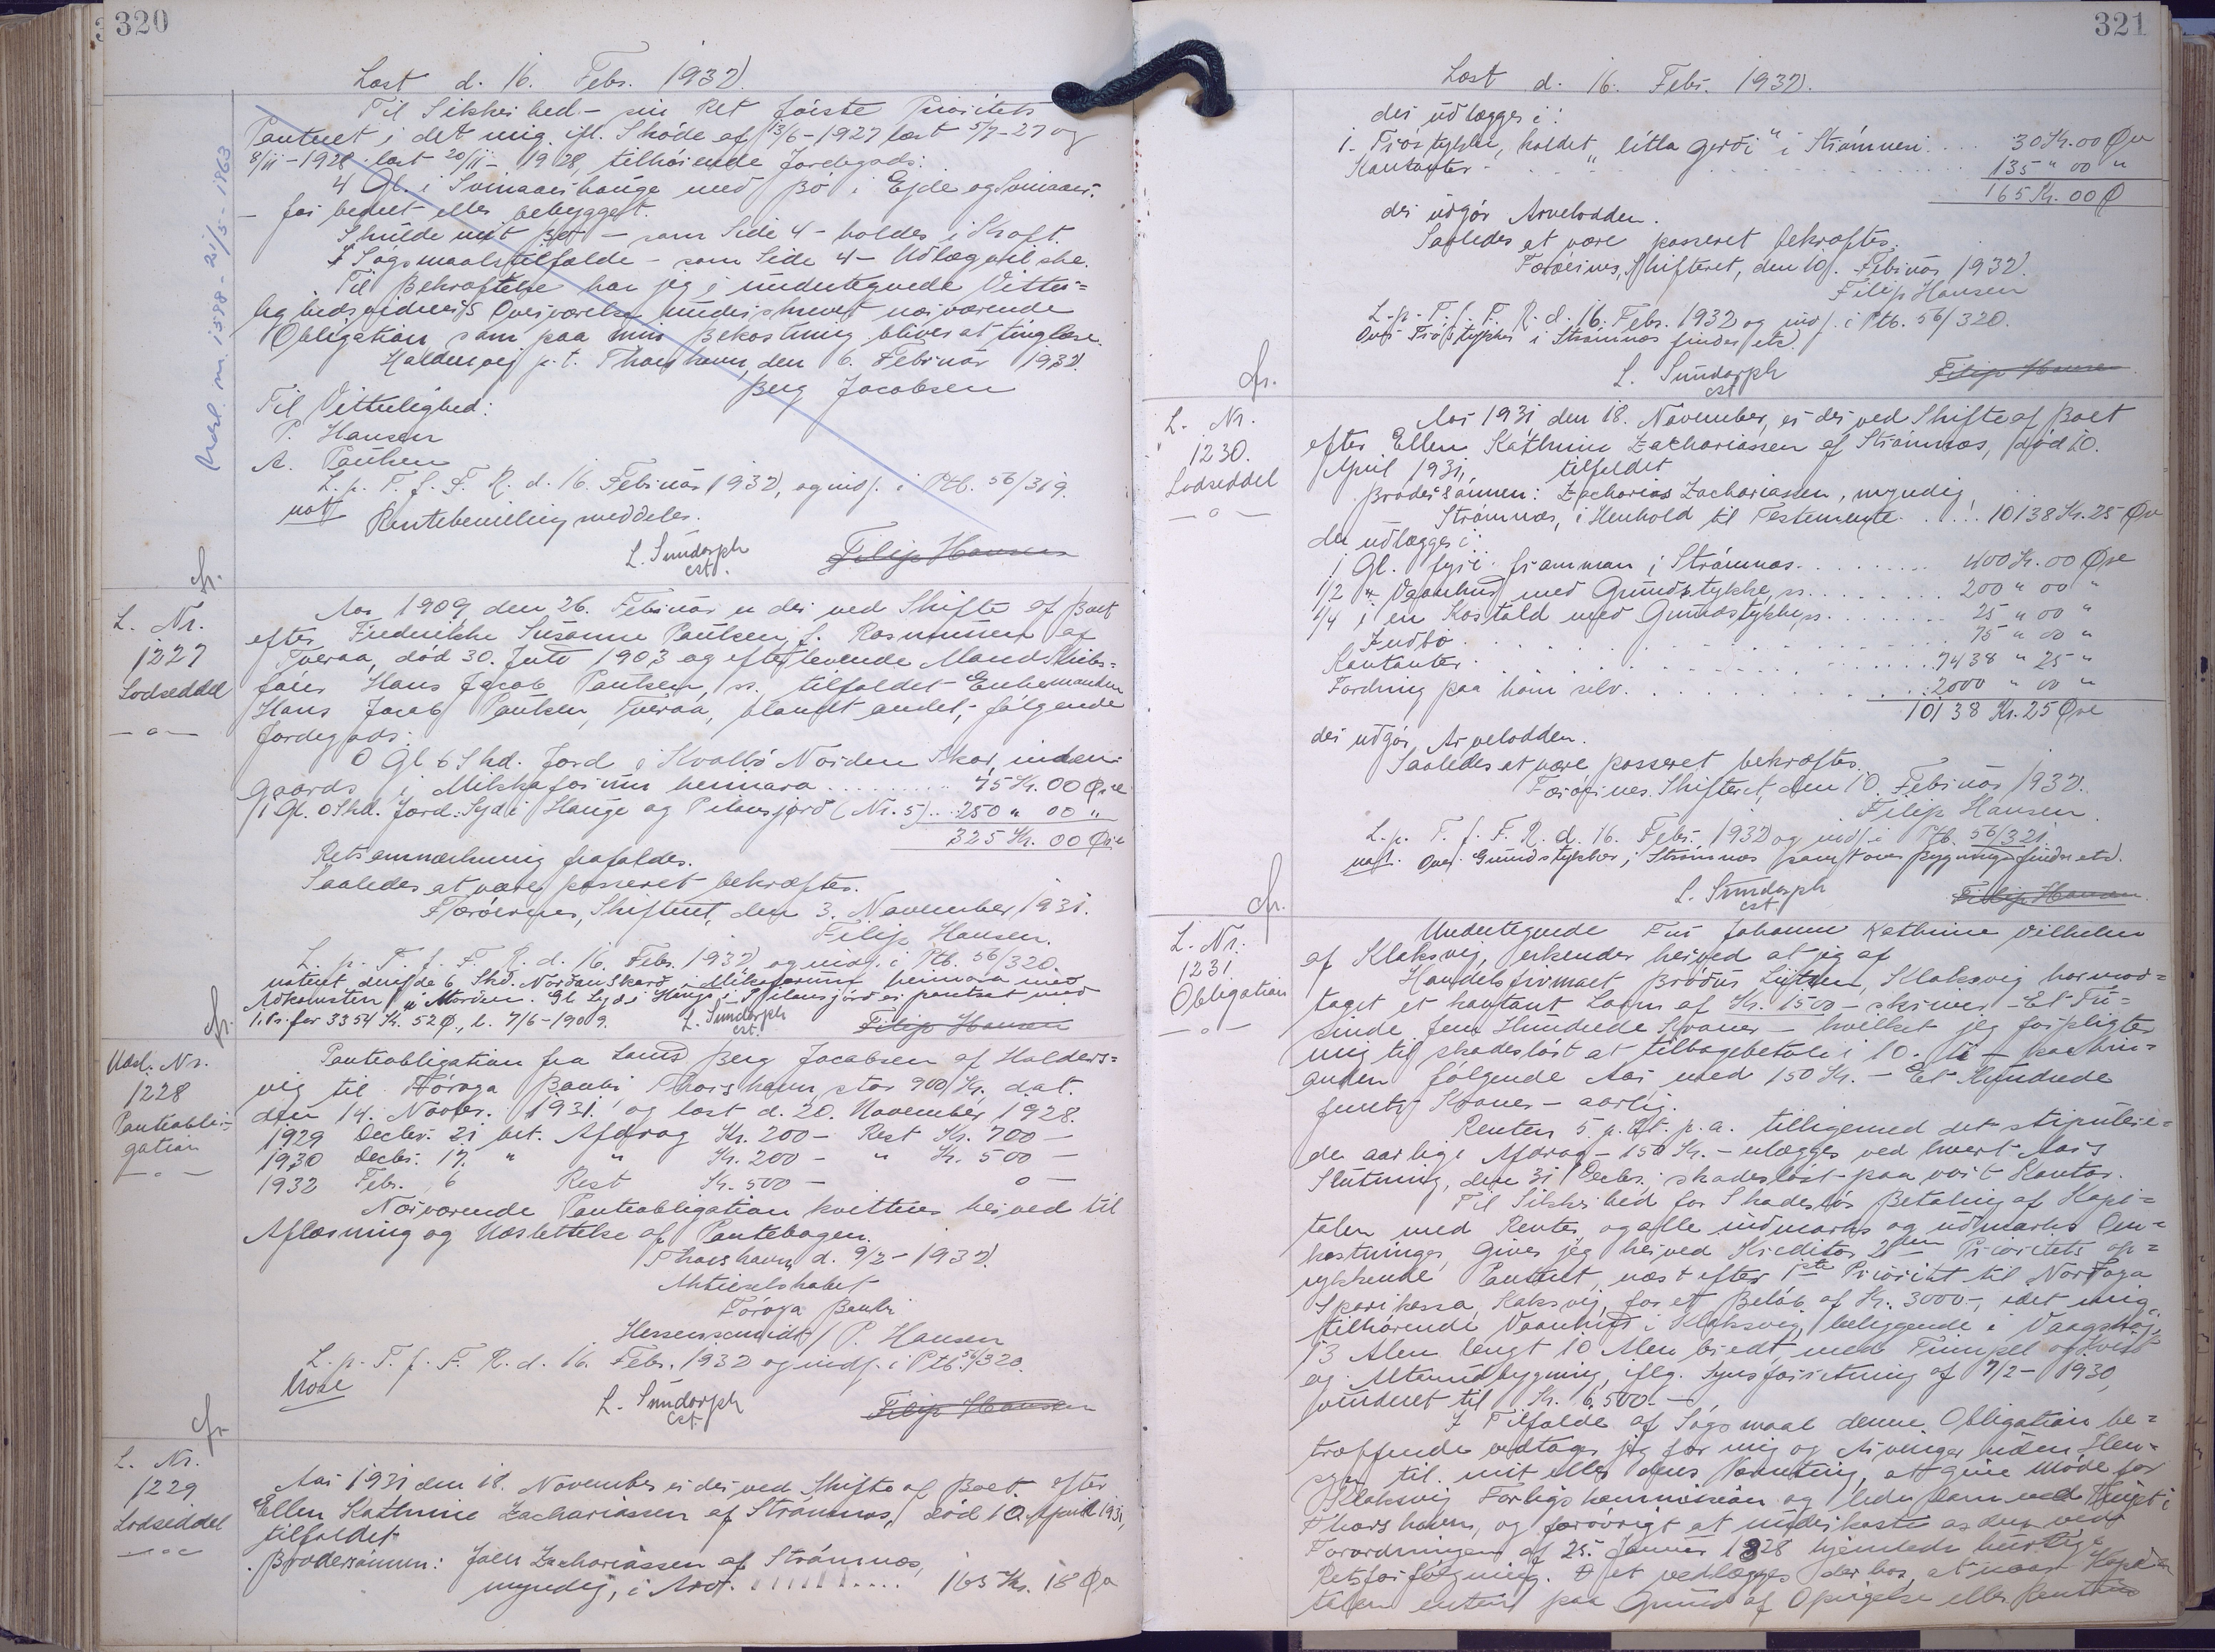 320
Læst d. 16. Febr. 1932.
Til Sikkerhed – giv Ret første Prioritets
Panteret i det mig ifl. Skøde af 13/6 – 1927 læst 5/7 – 27 og
8/11 – 1928 læst 20/11 – 1928, tilhørende Jordegods:
4 Gl. i Svinaarhauge med Bø i Ejde og Svinaar
– før benet eller bebygget.
Skulde mit Bo – som Side 4 – holdes i Kraft.
I Søgsmaalstilfælde – som Side 4 – Udlæg vil ske.
Til Bekræftelse har jeg i undertegnede Vitter=
lighedsvidners Overværelse underskrevet nærværende
Obligation som paa min Bekostning bliver at tinglæse.
Haldersvig p.t. Thorshavn, den 6. Februar 1932.
Berg Jacobsen
Til Vitterlighed:
P. Hansen
A. Poulsen
L. p. T. f. F. R. d. 16. Februar 1932, og indf. i Ptb. 56/319.
not Rentebevilling meddeles.
L. Sundorph
cst.
Filip Hansen
Udsl. m. 1588 – 21/5 – 1963
L. Nr.
1227
Lodseddel
Aar 1909, den 26. Februar er der ved Skifte af Boet
efter Frederikke Susanne Poulsen, f. Rasmussen af
Tveraa, død 30. Juni 1903 og efterlevende Mand Skibs=
fører Hans Jacob Poulsen, ss. tilfaldet Enkemanden
Hans Jacob Poulsen, Tveraa, blandt andet, følgende
Jordegods:
0 Gl 6 Skd. Jord i Kvalbø Norden Skar, inden=
gaards i Mikkaforum heimara ......... 75 Kr. 00 Øre
1 Gl. 0 Skd. Jord: Syd i Hauge og Pilensjørd (Nr. 5) ... 250 " 00 "
325 Kr. 00 Øre
Retsanmærkning frafaldes.
Saaledes at være passeret bekræftes.
Færøernes Skifteret, den 3. November 1931.
Filip Hansen.
L. p. T. f. F. R. d. 16. Febr. 1932 og indf. i Ptb. 56/320.
noteret
Adkomsten
1. Pr. for 3354 Kr. 52 Ø., l. 7/6 – 1909.
L. Sundorph
cst.
Filip Hansen
Udsl. Nr.
1228
Panteobli=
gation
Panteobligation fra Launs Berg Jacobsen af Halders=
vig til Føroya Banki Thorshavn, stor 900 Kr, dat.
den 14. Novbr. 1931. og læst d. 20. November 1928.
1929 Decbr. 21 bet. Afdrag Kr. 200 – Rest Kr. 700 –
1930 Decbr. 17. " " Kr. 200 – " Kr. 500 –
1932 Febr. 6 Rest Kr. 500 – 0 –
Nærværende Panteobligation kvitteres herved til
Aflæsning og Udslettelse af Pantebogen.
Thorshavn, d. 9/2 – 1932
Aktieselskabet
Føroya Banki
Hessenschmidt / P. Hansen
L. p. T. f. F. R. d. 16. Febr. 1932 og indf. i Ptb. 56/320.
Udsl
L. Sundorph
cst.
Filip Hansen
L. Nr.
1229
Lodseddel
Aar 1931 den 18. November er der ved Skifte af Boet efter
Ellen Kathrine Zachariassen af Strømnæs, død 10. April 1931,
tilfaldet
Brodersønnen: Joen Zachariassen af Strømnæs,
myndig, i Arv. ......... 165 Kr. 18 Øre
321
Læst d. 16. Febr. 1932.
der udlægges i:
1. Træstykke, kaldet "litla gerði" i Strømnæs .... 30 Kr. 00 Øre
Kontanter ......... 135 " 00 "
165 Kr. 00 Ø
der udgør Arvelodden.
Saaledes at være passeret bekræftes.
Færøernes Skifteret, den 10. Februar 1932.
Filip Hansen
L. p. T. f. F. R. d. 16. Febr. 1932 og indf. i Ptb. 56/320.
Over Træstykker i Strømnæs findes etc.
L. Sundorph
cst
Filip Hansen
L. Nr.
1230.
Lodseddel
Aar 1931 den 18. November, er der ved Skifte af Boet
efter Ellen Kathrine Zachariassen af Strømnæs, død 10.
April 1931, tilfaldet
Brodersønnen: Zacharias Zachariassen, myndig,
Strømnæs, i Henhold til Testemente ...... 10138 Kr. 25 Øre
der udlægges i:
1 Gl. fyri framman i Strømnæs ......... 400 Kr. 00 Øre
1/2 " Vaanhus med Grundstykke, ss. ......... 200 " 00 "
1/4 i en Kostald med Grundstykke, ss. ......... 25 " 00 "
Indbo ......... 75 " 00 "
Kontanter ......... 7438 " 25 "
Fordring paa ham selv ......... 2000 " 00 "
10138 Kr. 25 Øre
der udgør Arvelodden.
Saaledes at være passeret bekræftes.
Færøernes Skifteret, den 10. Februar 1932.
Filip Hansen.
L. p. T. f. F. R. d. 16. Febr. 1932 og indf. i Ptb. 56/321.
not. Over Grundstykker i Strømnæs samt over Bygninger findes etc.
L. Sundorph
cst.
Filip Hansen
L. Nr.
1231
Obligation
Undertegnede Fru Johanne Kathrine Vilhelm
af Klaksvig, erkender herved at jeg af
Handelsfirmaet Brødrene Lützen, Klaksvig har mod=
taget et kontant Laan af Kr. 1500 – skriver Et Tu=
sinde fem Hundrede Kroner – hvilket jeg forpligter
mig til skadesløst at tilbagebetale i 10. ti – paa hin=
anden følgende Aar med 150 Kr. – Et Hundrede
femti Kroner – aarlig.
Renten 5 p. Ct. p. a. tilligemed det stipulere=
de aarlige Afdrag – 150 Kr. – erlægges ved hvert Aars
Slutning, den 31 Decbr. skadesløst paa vort Kontor.
Til Sikkerhed for Skadesløs Betaling af Kapi=
talen med Renter og alle indmarks og udmarks Om=
kostninger, giver jeg herved Kreditor 2den Prioritets op=
rykkende Panteret, næst efter 1ste Prioritet til Norðoya
Sparikassa, Klaksvig, for et Beløb af Kr. 3000 –, i det mig
tilhørende Vaanhus i Klaksvig, beliggende i Vaagshøj,
13 Alen langt 10 Alen bredt, med Timpel og Kvist
og Altanudbygning, iflg. Synsforretning af 7/2 – 1930,
vurderet til Kr. 6.500. –
I Tilfælde af Søgsmaal denne Obligation be=
træffende vedtager jeg for mig og Arvinger uden Hen=
syn til mit eller deres Værneting, at give Møde for
Klaksvig Forligskommission og lide Dom ved Retten i
Thorshavn, og forøvrigt at underkaste os den ved
Forordningen af 25. Januar 1828 hjemlede hurtige
Retsforfølgning. Det vedtages derhos, at naar Kapi=
talen enten paa Grund af Opsigelse eller Rentens